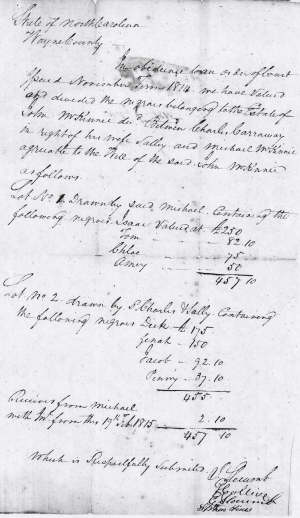 State of North Carolina
Wayne County
In obedience to an order of Court
Issued November Term 1814 we have Valued
and divided the negroes belonging to the Estate of
John McKinnie decd Between Charles Carraway
in right of his wife Sally and Michael McKinnie
agreable to the Will of the said John McKinnie
as follows
Lot No. 1 Drawn by said Michael Containing the
following negroes Isaac Valued at £250
Tom 82.10
Chloe 75
Amey 50
457 10
Lot No 2 drawn by Charles & Sally Containing
the following negroes £175
150
Jacob 92.10
Penny 37.10
455
Receives from Michael
with Int from this 17th Feb 1815 2.10
457 10
Which is Respectfully Submitted